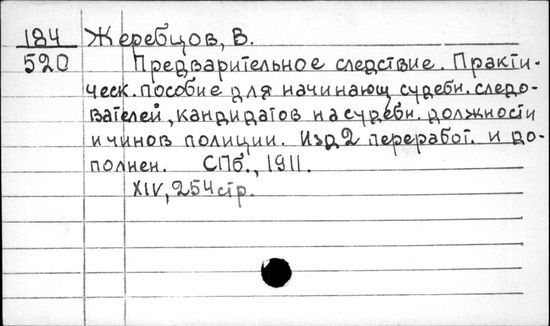 184 Жеребцов, В.
520 Предварительное следствие. Практи-
ческ. пособие для начинающ судебн. следо-
вателей, кандидатов на судебн. должности
и чинов полиции. Изд 2 переработ. и до-
полнен. СПб., 1911.
XIV, 254 стр.